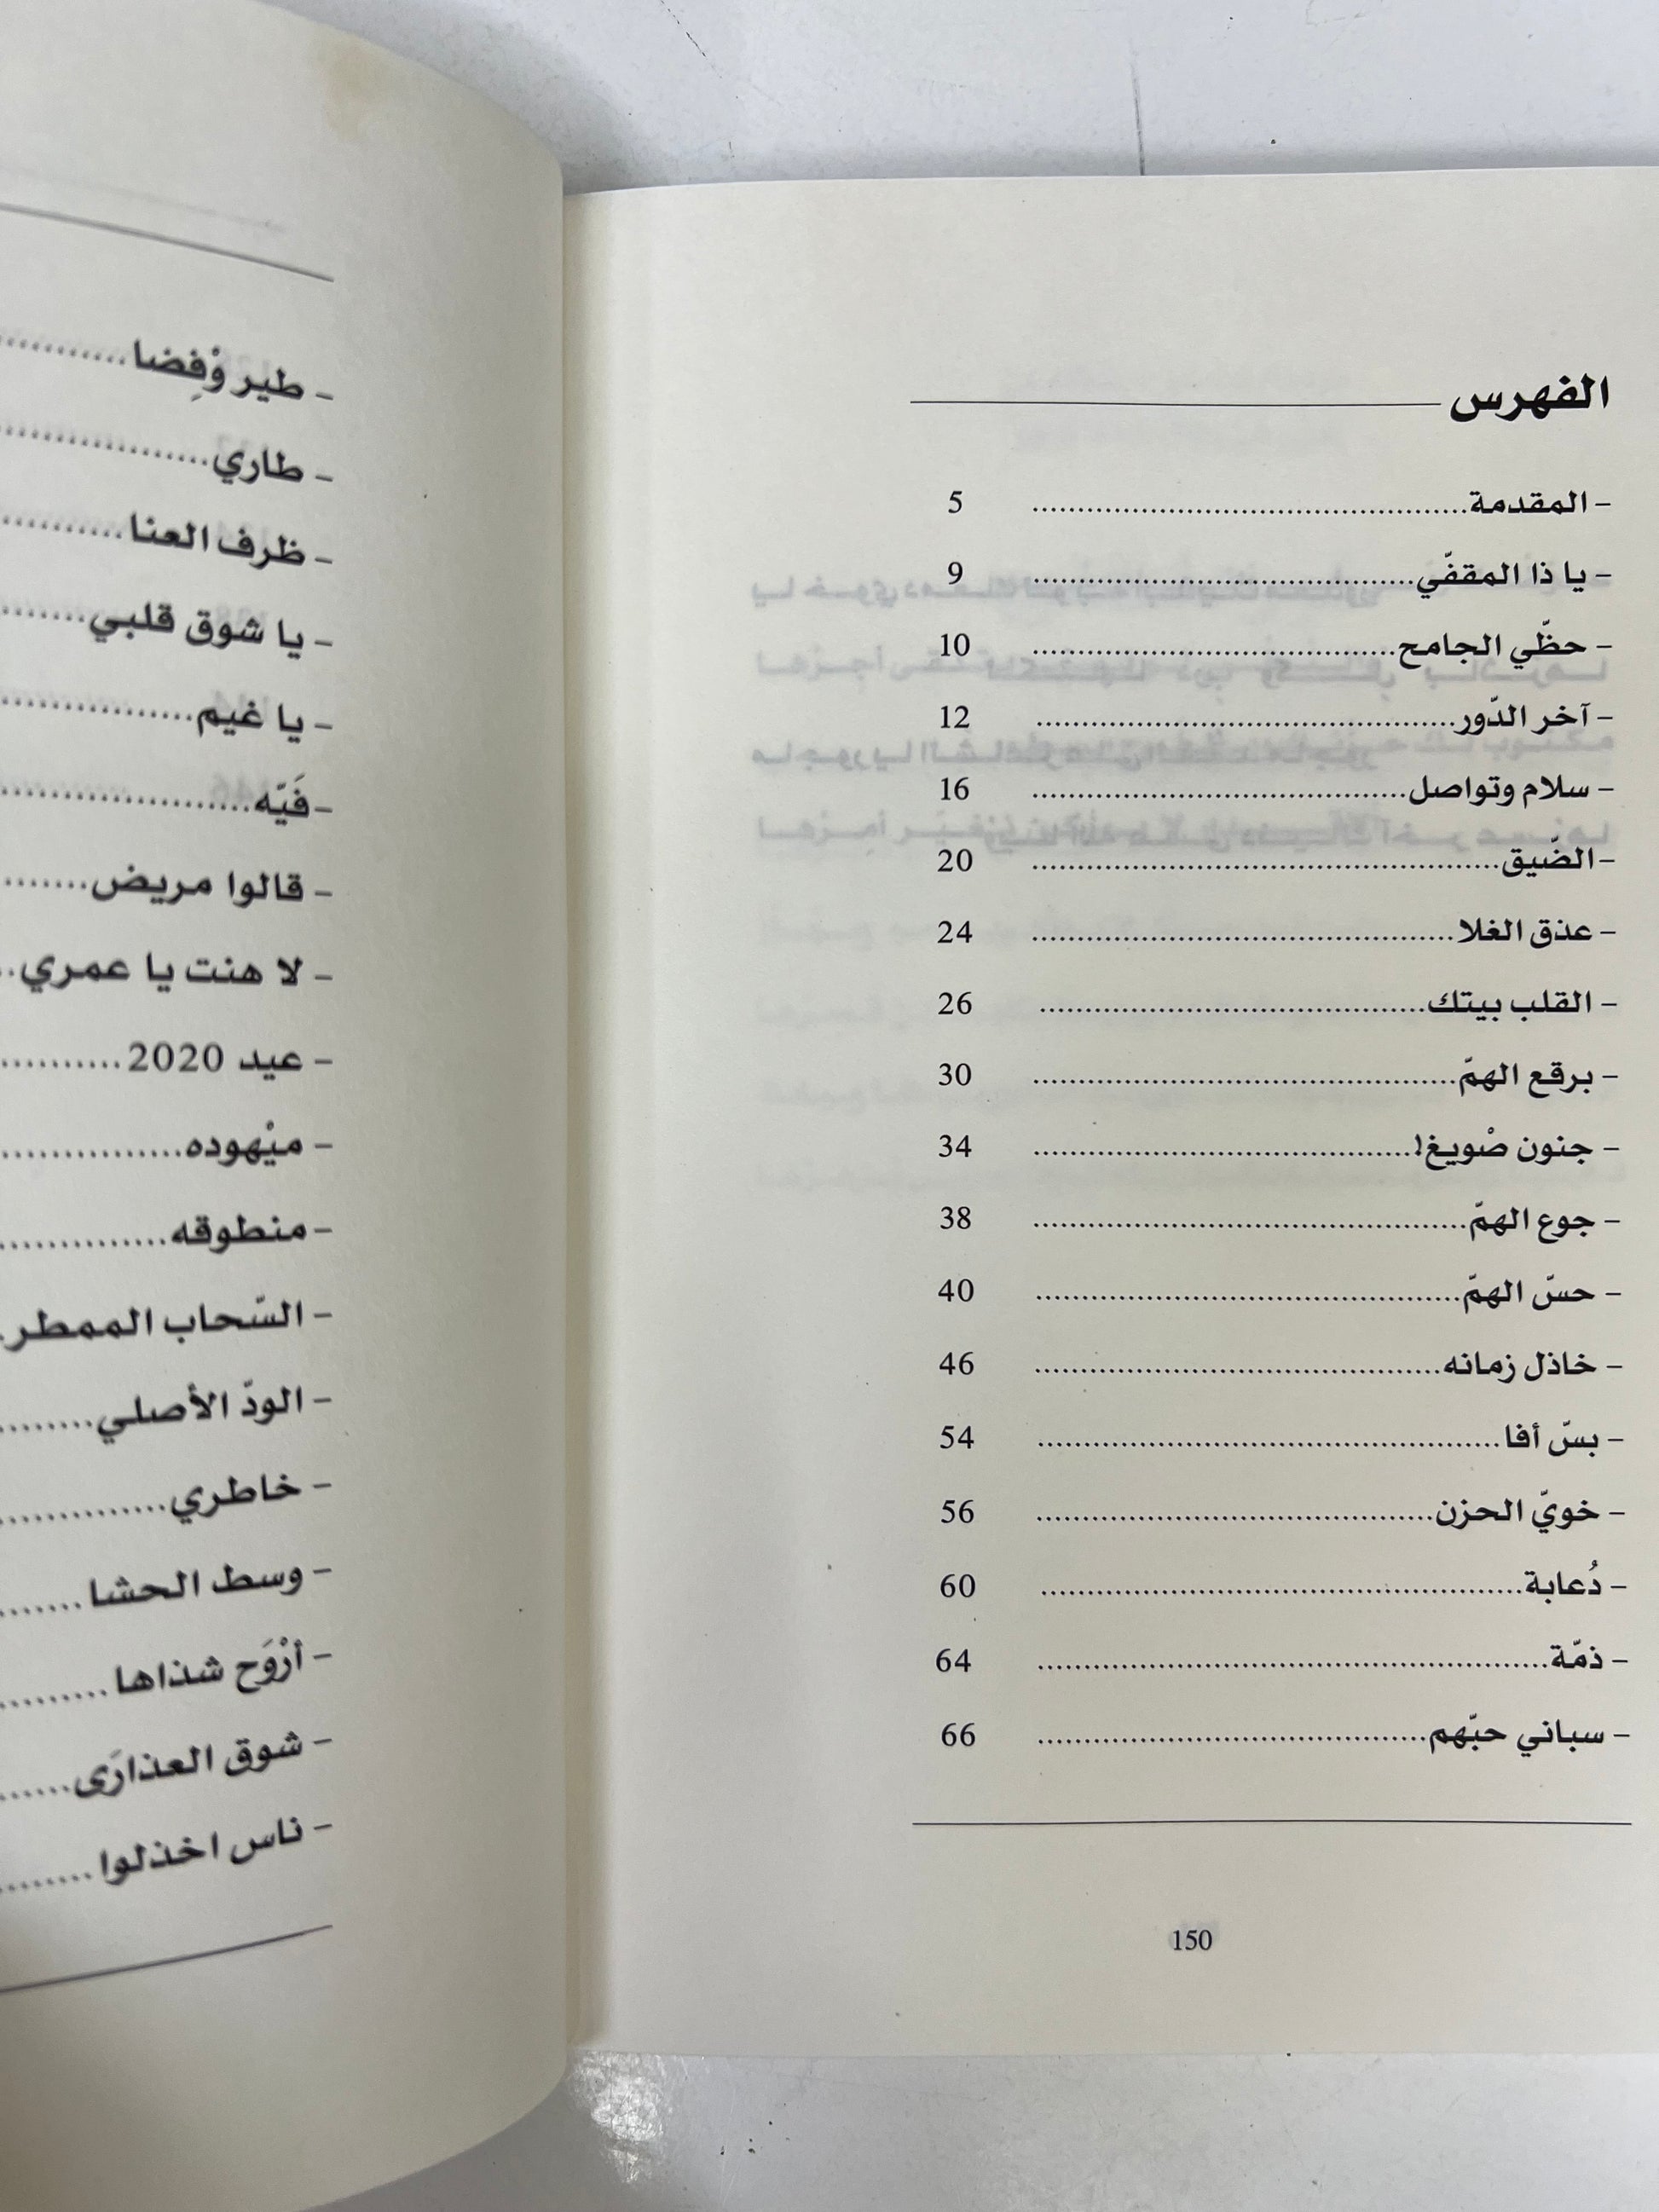 الفهرس
– المقدمة........................................ 5
– يا ذا المقفّي........................................ 9
– حظّي الجامح........................................ 10
– آخر الدّور........................................ 12
– سلام وتواصل........................................ 16
–الضّيق........................................ 20
– عذق الغلا........................................ 24
– القلب بيتك........................................ 26
– برقع الهمّ........................................ 30
– جنون ضْويغ!........................................ 34
– جوع الهمّ........................................ 38
– حسّ الهمّ........................................ 40
– خاذل زمانه........................................ 46
– بسّ أفا........................................ 54
– خويّ الحزن........................................ 56
– دُعابة........................................ 60
– ذمّة........................................ 64
– سباني حبّهم........................................ 66
150
– طير وْفِضا............
– طاري............
– ظرف العنا............
– يا شوق قلبي............
– يا غيم............
–فَيّه............
– قالوا مريض............
– لا هنت يا عمري..
– عيد 2020............
– ميْهوده............
–منطوقه............
– السّحاب الممطر.
– الودّ الأصلي............
– خاطري............
– وسط الحشا............
– أرْوَح شذاها............
– شوق العذارَى............
– ناس اخذلوا............